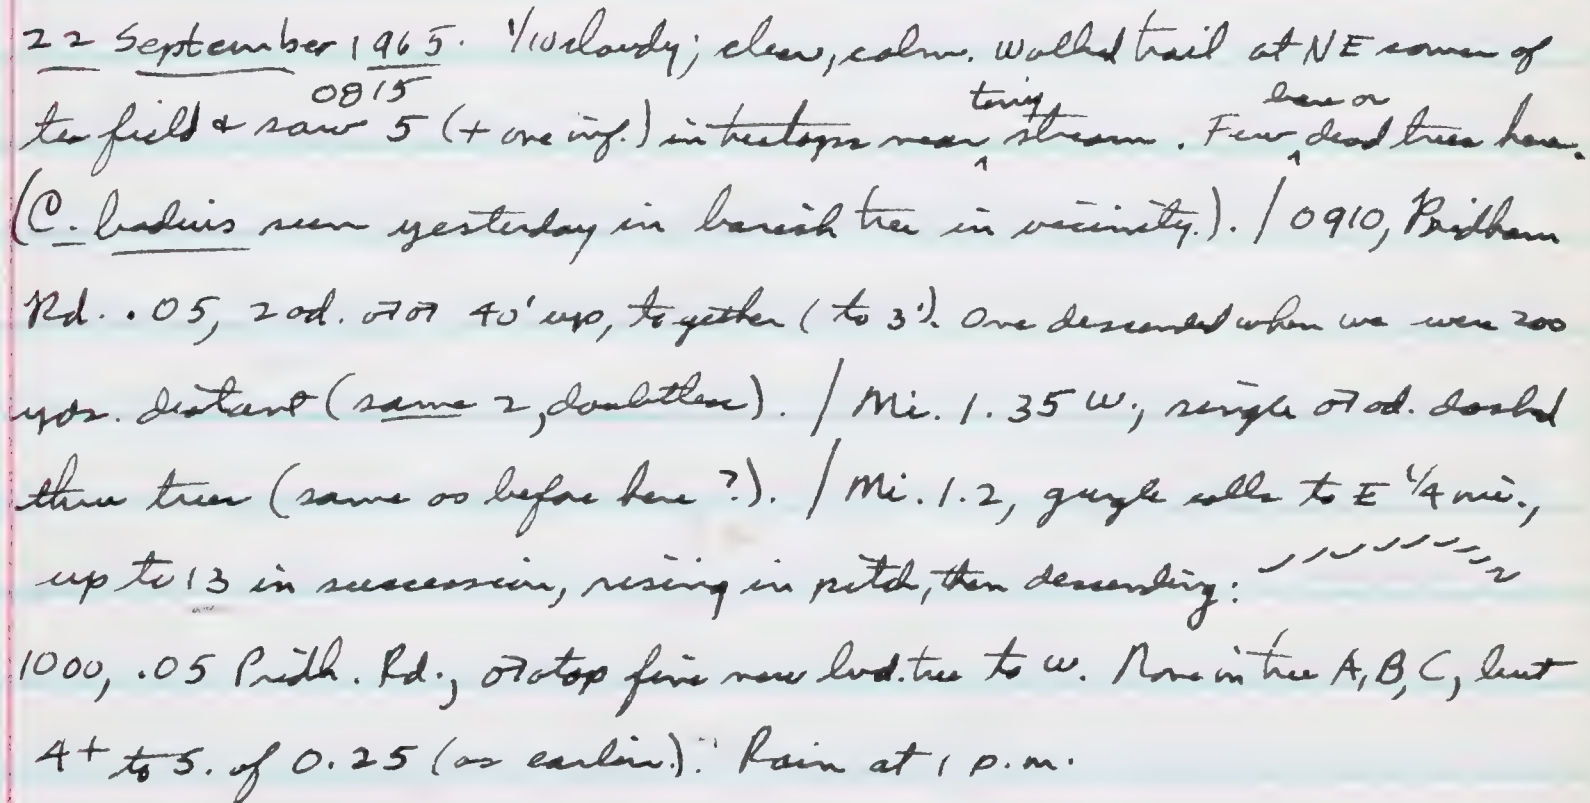 22 September 1965. 1/10 cloudy; clear, calm. Walked trail at NE corner of
0815 tiny bare or
tea field & saw 5 (+ one inf.) in treetops near ^ stream. Few ^ dead trees here.
(C. badius seen yesterday in barish tree in vicinity.). / 0910, Pridham
Rd. .05, 2 ad. ♂♂ 40' up, together (to 3'). One descended when we were 200
yds. distant (same 2, doubtless). / Mi. 1.35 W., single ♂ ad. dashed
thru trees (same as before here ?). / Mi. 1.2, gurgle calls to E 1/4 mi.,
up to 13 in succession, rising in pitch, then descending:
1000, .05 Pridh. Rd., ♂ atop fine new lvd. tree to W. None in tree A, B, C, but
4+ to S. of 0.25 (as earlier). Rain at 1 p.m.